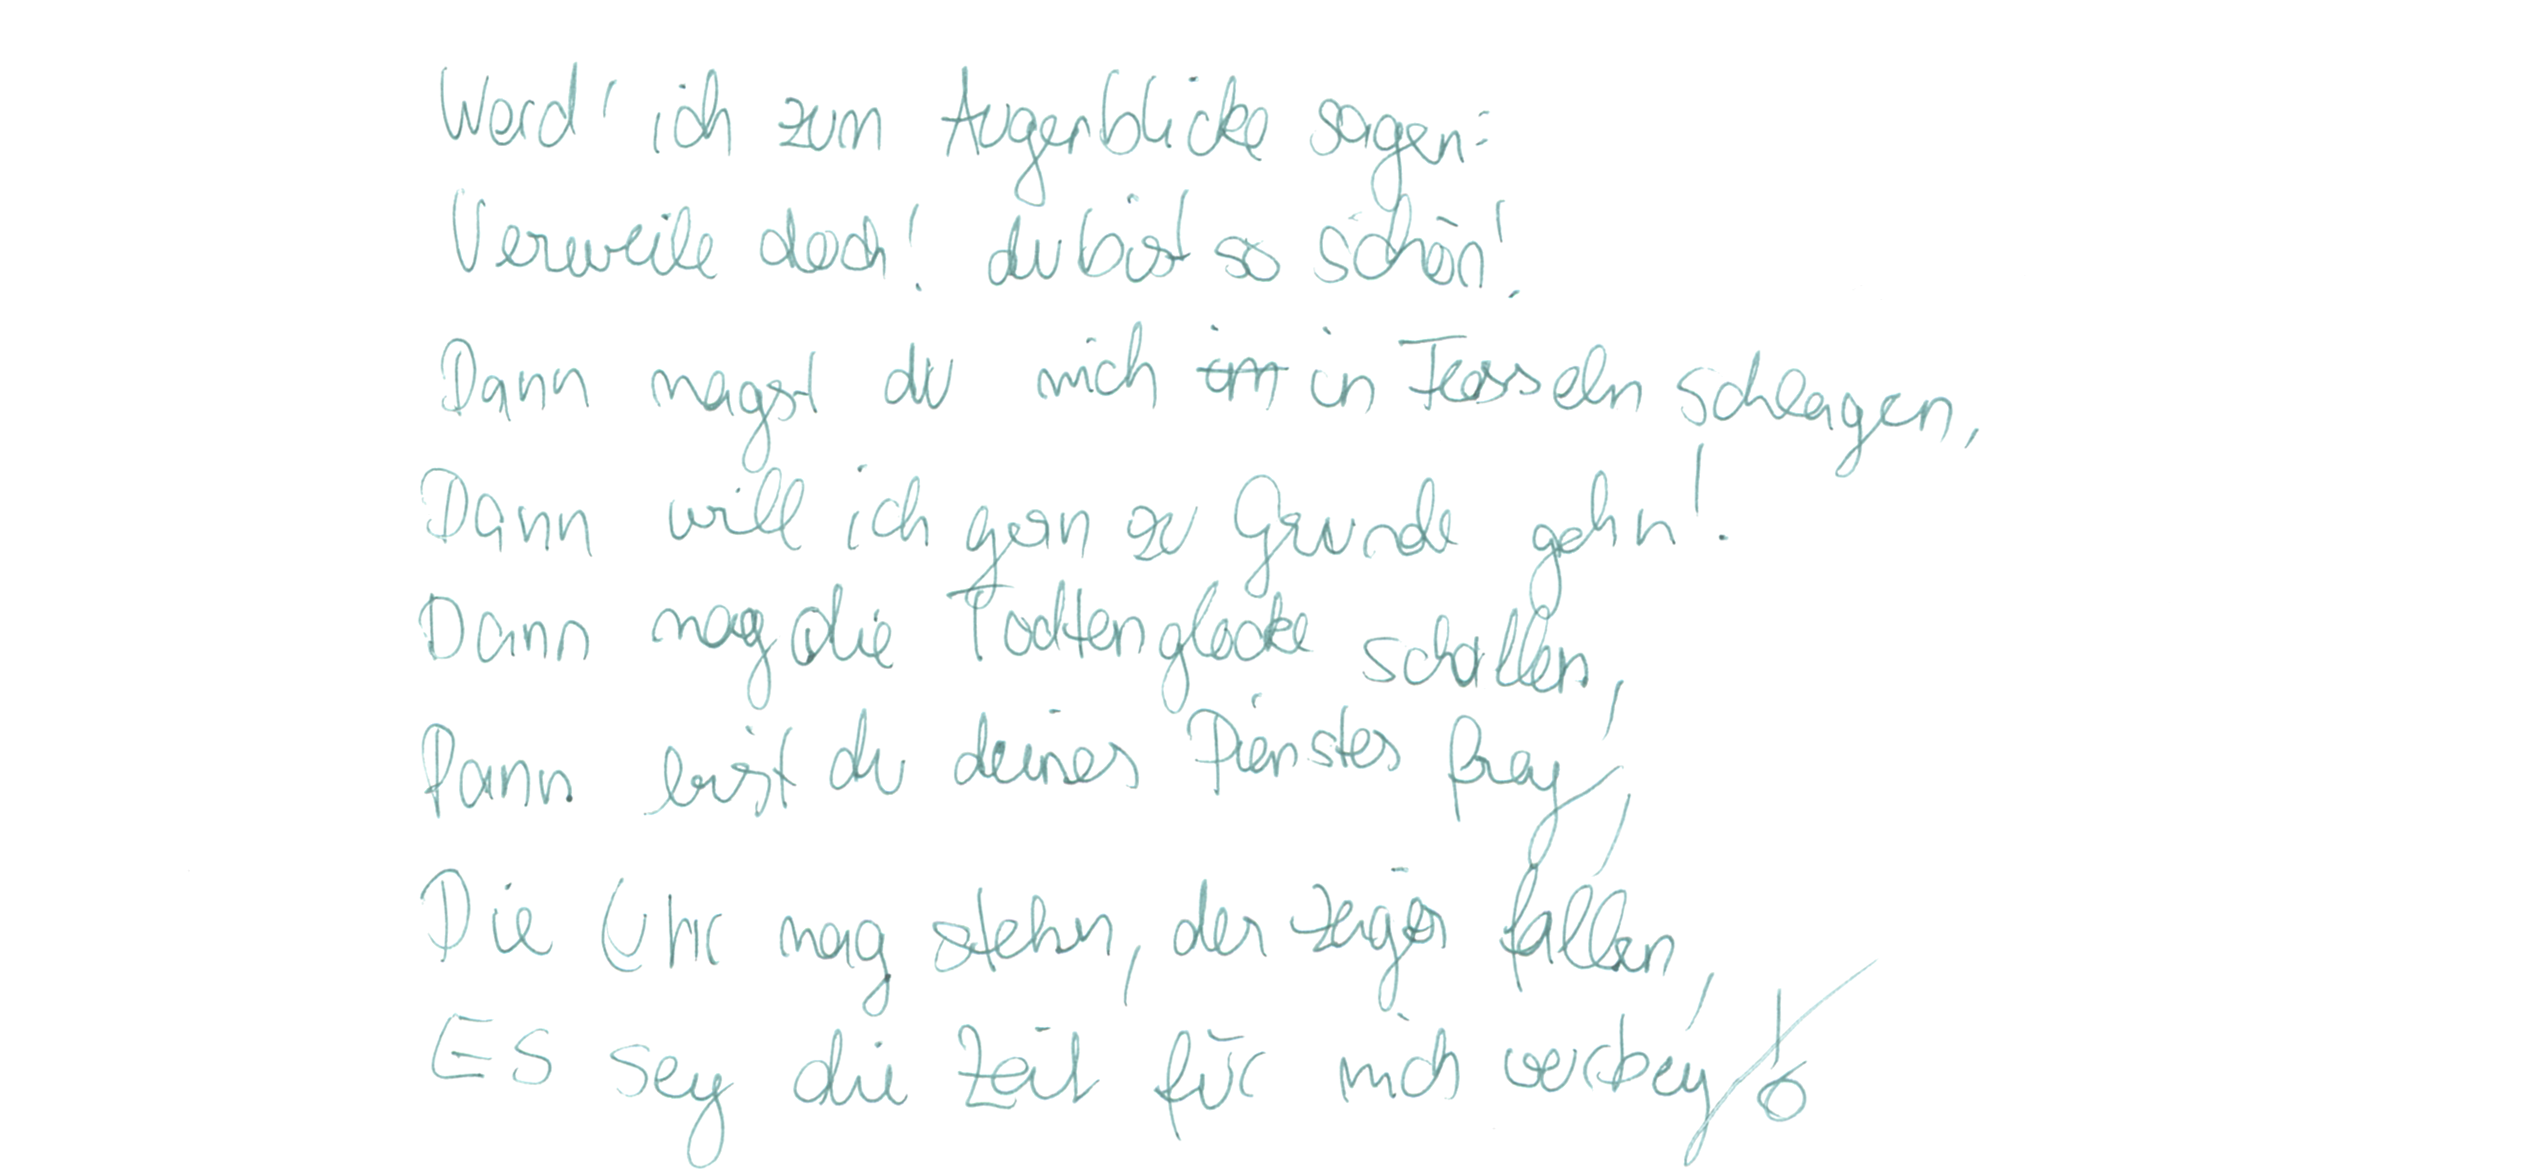 Werd' ich zum Augenblicke sagen:
Verweile doch! du bist so schön!
Dann magst du mich im in Fesseln schlagen,
Dann will ich gern zu Grunde gehn!
Dann mag die Todtenglocke schallen,
Dann bist du deines Dienstes frey,
Die Uhr mag stehn, der Zeiger fallen,
ES sey die Zeit für mich vorbey!